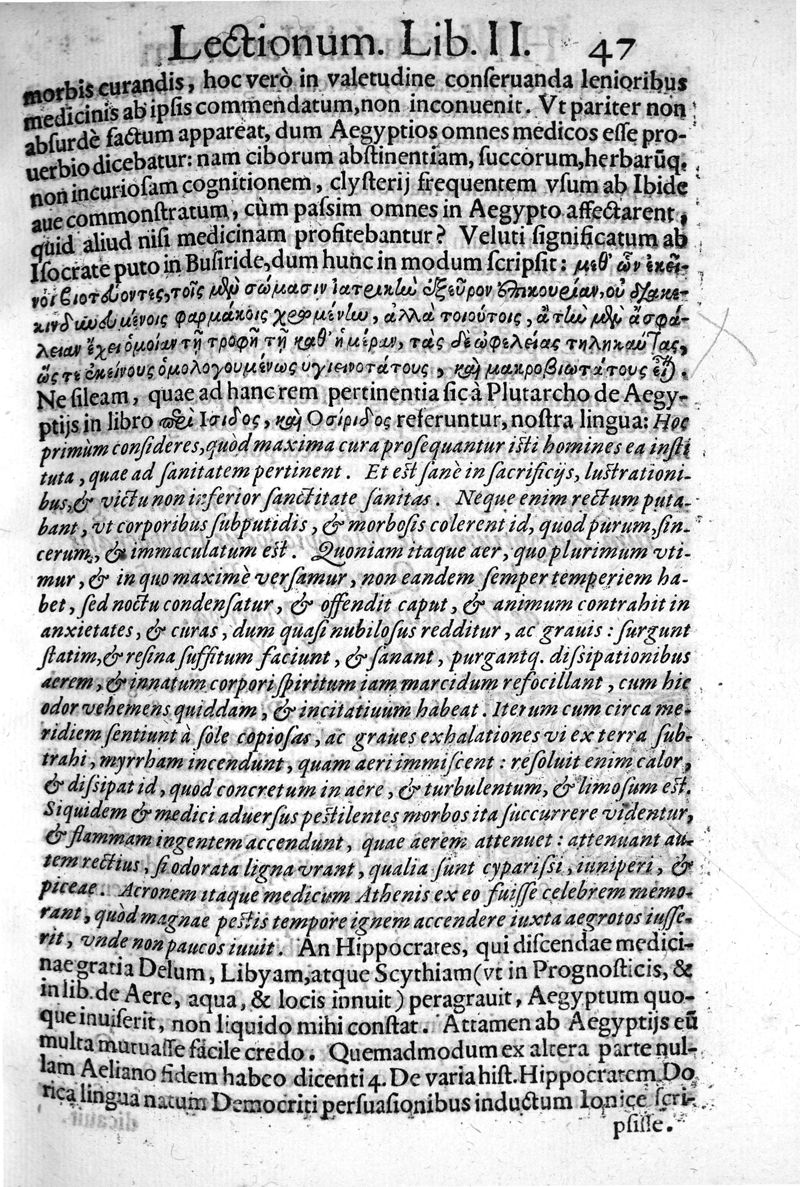 Lectionum. Lib. II. 47
morbis curandis, hoc verò in valetudine conſeruanda lenioribus
medicinis ab ipſis commendatum, non inconuenit. Vt pariter non
abſurdè factum appareat, dum Aegyptios omnes medicos eſſe pro-
uerbio dicebatur: nam ciborum abſtinentiam, ſuccorum, herbarūq.
non incurioſam cognitionem, clyſterij frequentem vſum ab Ibide
aue commonſtratum, cùm paſsim omnes in Aegypto affectarent,
quid aliud niſi medicinam profitebantur? Veluti ſignificatum ab
Iſocrate puto in Buſiride, dum hunc in modum ſcripſit: μεθ' ὧν ἐκεῖ-
νοι βιοτεύοντες, τοῖς μὲν σώμασιν ἰατρικὴν ἐξεῦρον ἐπικουρίαν, οὐ διακε-
κινδυνευμένοις φαρμάκοις χρωμένην, ἀλλὰ τοιούτοις, ἃ τὴν μὲν ἀσφά-
λειαν ἔχει ὁμοίαν τῇ τροφῇ τῇ καθ' ἡμέραν, τὰς δὲ ὠφελείας τηλικαύτας,
ὥς τε ἐκείνους ὁμολογουμένως ὑγιεινοτάτους, καὶ μακροβιωτάτους εἶναι.
Ne ſileam, quae ad hanc rem pertinentia ſic à Plutarcho de Aegy-
ptijs in libro περὶ Ισιδος, καὶ Οσίριδος referuntur, noſtra lingua: Hoc
primùm conſideres, quòd maxima cura proſequantur iſti homines ea inſti
tuta, quae ad ſanitatem pertinent. Et eſt ſanè in ſacrificijs, luſtrationi-
bus, & victu non inferior ſanctitate ſanitas. Neque enim rectum puta-
bant, vt corporibus ſubputidis, & morboſis colerent id, quod purum, ſin-
cerum, & immaculatum eſt. Quoniam itaque aer, quo plurimum vti-
mur, & in quo maximè verſamur, non eandem ſemper temperiem ha-
bet, ſed noctu condenſatur, & offendit caput, & animum contrahit in
anxietates, & curas, dum quaſi nubiloſus redditur, ac grauis: ſurgunt
ſtatim, & reſina ſuffitum faciunt, & ſanant, purgantq. diſsipationibus
aerem, & innatum corpori ſpiritum iam marcidum refocillant, cum hic
odor vehemens quiddam, & incitatiuum habeat. Iterum cum circa me-
ridiem ſentiunt à ſole copioſas, ac graues exhalationes vi ex terra ſub-
trahi, myrrham incendunt, quam aeri immiſcent: reſoluit enim calor,
& diſsipat id, quod concretum in aëre, & turbulentum, & limoſum eſt.
Siquidem & medici aduerſus peſtilentes morbos ita ſuccurrere videntur,
& flammam ingentem accendunt, quae aerem attenuet: attenuant au-
tem rectius, ſi odorata ligna vrant, qualia ſunt cypariſsi, iuniperi, &
piceae. Acronem itaque medicum Athenis ex eo fuiſſe celebrem memo-
rant, quòd magnae peſtis tempore ignem accendere iuxta aegrotos iuſſe-
rit, vnde non paucos iuuit. An Hippocrates, qui diſcendae medici-
nae gratia Delum, Libyam, atque Scythiam (vt in Prognoſticis, &
in lib. de Aere, aqua, & locis innuit) peragrauit, Aegyptum quo-
que inuiſerit, non liquido mihi conſtat. Attamen ab Aegyptijs eū
multa mutuaſſe facile credo. Quemadmodum ex altera parte nul-
lam Aeliano fidem habeo dicenti 4. De varia hiſt. Hippocratem Do
rica lingua natum Democriti perſuaſionibus inductum Ionice ſcri-
pſiſſe.